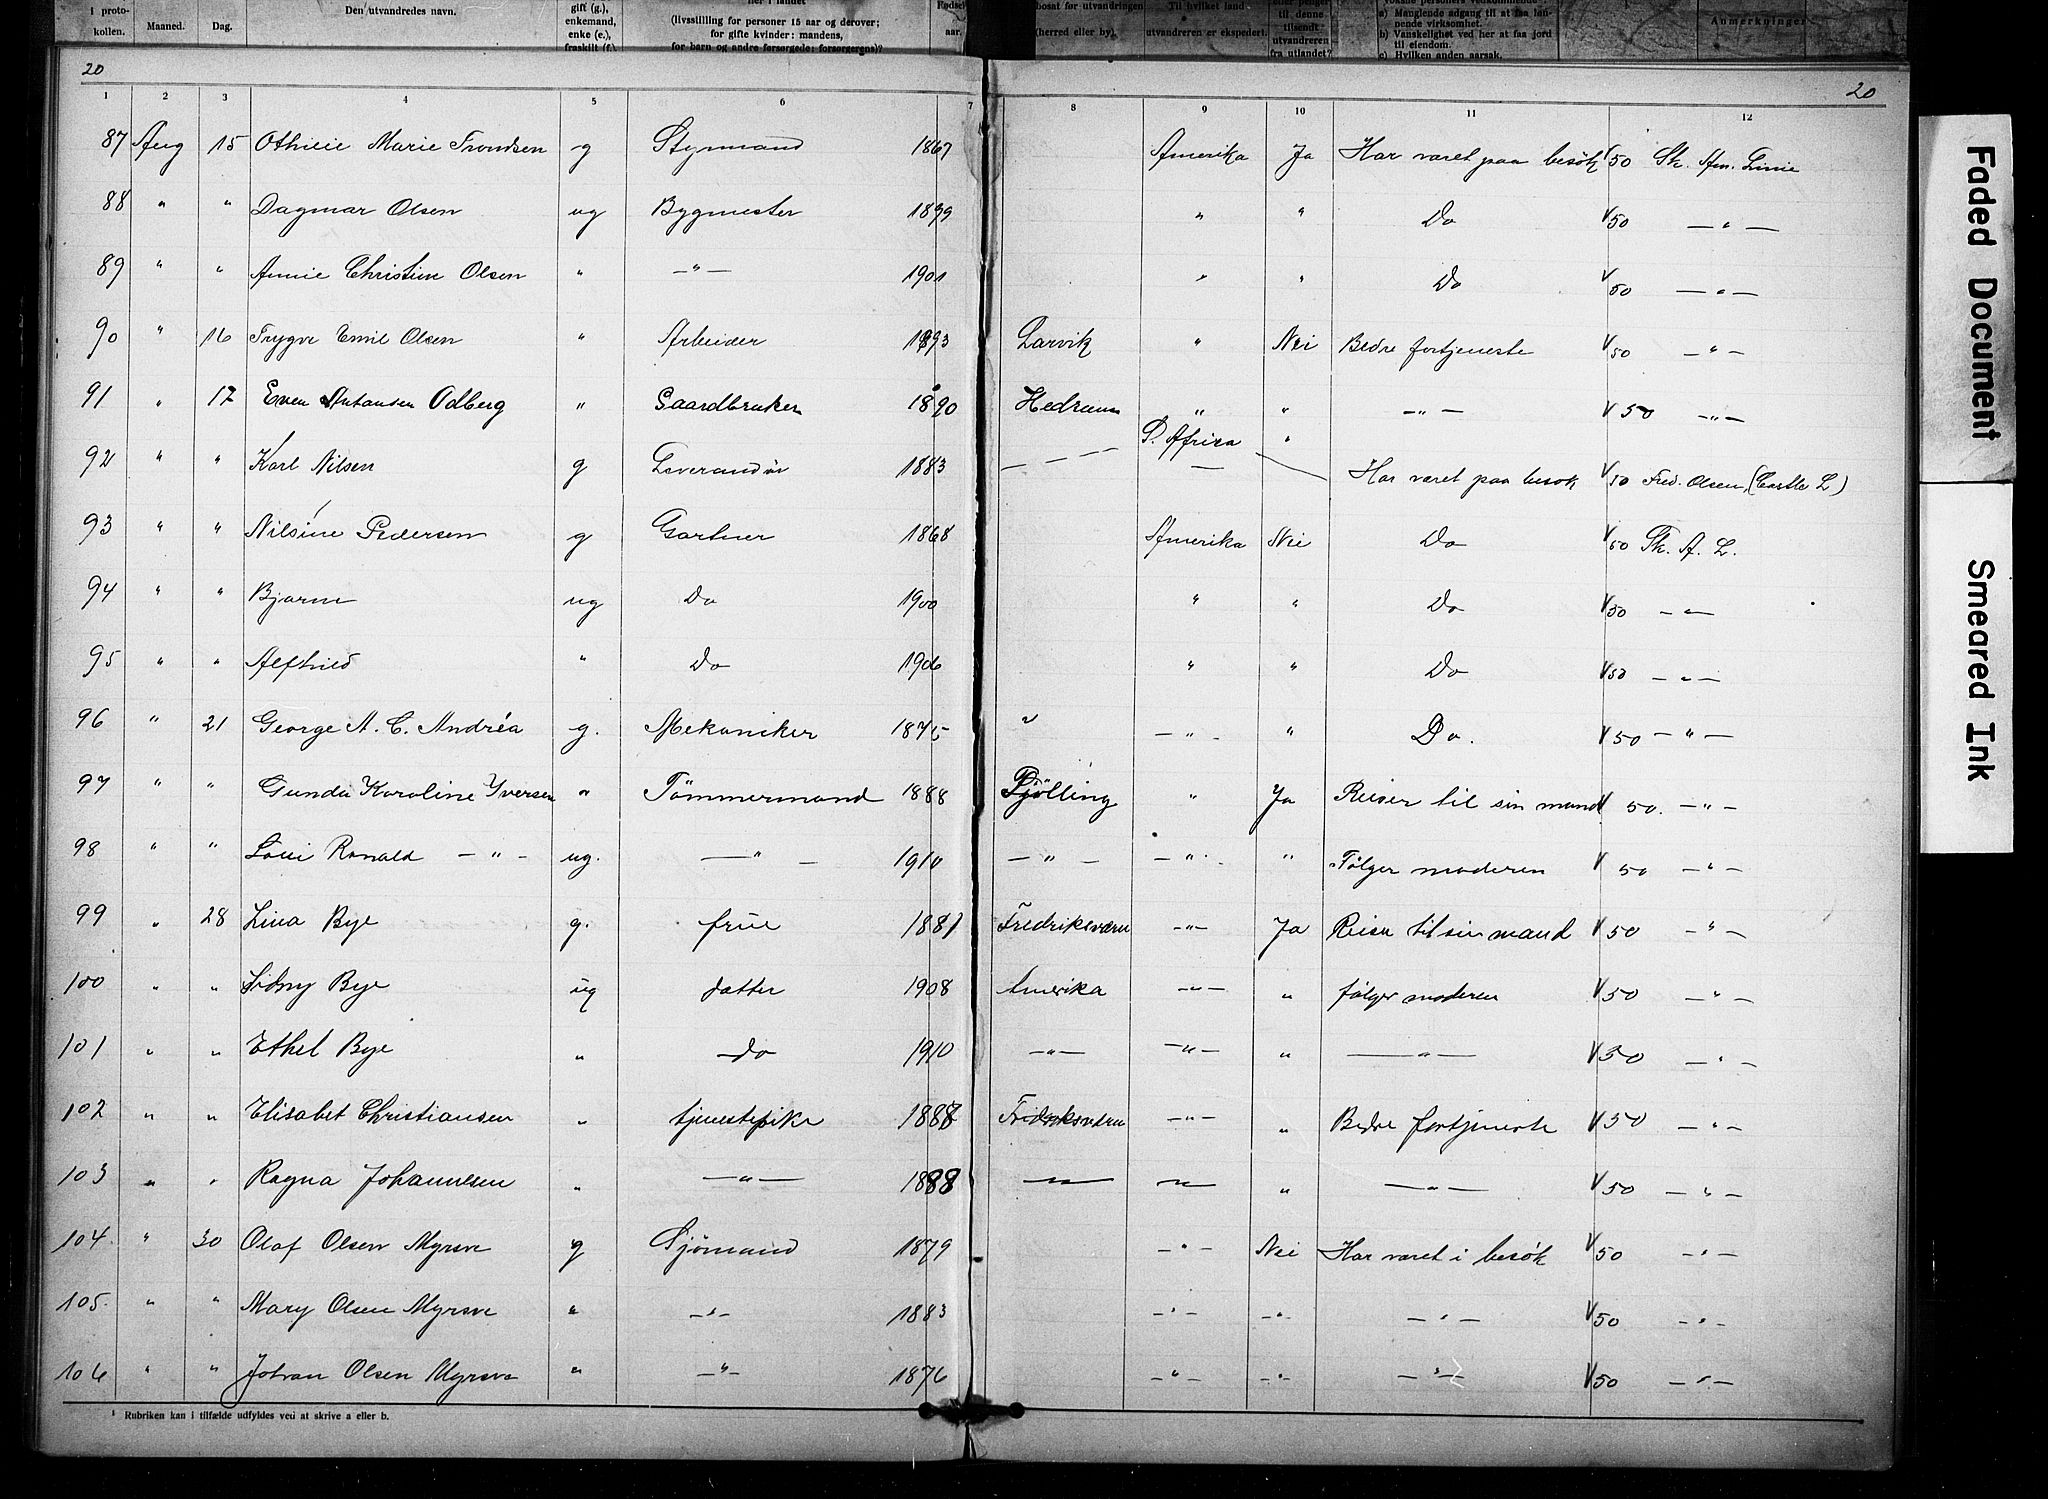 i proto- kollen. Maaned. Dag. Den utvandredes navn. gift (g.), enkemand, enke (e.), fraskilt (f.) her i landet (livsstilling for personer 15 aar og derover; for gifte kvinder: mandens, for barn og andre forsørgede: forsørgerens)? Fødsels aar. bosat før utvandringen (herred eller by). Til hvilket land utvandreren er ekspedert. til denne tilsendt utvandreren fra utlandet? a) Manglende adgang til at faa løn- nende virksomhet. b) Vanskelighet ved her at faa jord til eiendom. c) Hvilken anden aarsak. Anmerkninger
20 20
1 2 3 4 5 6 7 8 9 10 11 12
87 Aug 15 Othilie Marie Trondsen g Styrmand 1867 Amerika Ja Har været paa besök 50 Sk. Am. Linie
88 " " Dagmar Olsen ug Bygmester 1899 " " Do 50 — " —
89 " " Annie Christine Olsen " — " — 1901 " " Do 50 — " —
90 " 16 Trygve Emil Olsen " Arbeider 1893 Larvik " Nei Bedre fortjeneste 50 — " —
91 " 17 Even Antonsen Odberg " Gaardbruker 1890 Hedrum " " — " — 50 — " —
92 " " Karl Nilsen g Leverandör 1883 — — — S. Africa " Har været paa besök 50 Fred. Olsen, (Castle L)
93 " " Nilsine Pedersen g Gartner 1868 Amerika Nei Do 50 Sk. A. L.
94 " " Bjarne ug Do 1900 " " Do 50 — " —
95 " " Alfhild " Do 1906 " " Do 50 — " —
96 " 21 George A. C. Andréa g. Mekaniker 1875 " — " — " Do. 50 — " —
97 " " Gunda Karoline Iversen " Tömmermand 1888 Tjölling " Ja Reiser til sin mand 50. — " —
98 " " Loui Ronald — " — ug. — " — 1910 — " — — " — " Fölger moderen 50 — " —
99 " 28 Lina Bye g. frue 1881 Fredriksværn — " — Ja Reise til sin mand 50 — " —
100 " " Sidny Bye ug datter 1908 Amerika — " — " fölger moderen 50 — " —
101 " " Ethel Bye " do 1910 — " — — " — " — " — 50 — " —
102 " " Elisabet Christiansen " tjenestepike 1887 Fredriksværn — " — " Bedre fortjeneste 50 — " —
103 " " Ragna Johannesen " — " — 1888 — " — — " — " — " — 50 — " —
104. " 30 Olaf Olsen Myrsve g Sjömand 1879 — " — Nei Har været i besök 50 — " —
105. " " Mary Olsen Myrsve " — " — 1883 — " — — " — — " — 50 — " —
106 " " Johan Olsen Myrsve " — " — 1876 — " — — " — — " — 50 — " —
¹ Rubriken kan i tilfælde utfyldes ved at skrive a eller b.
Faded Document
Smeared Ink